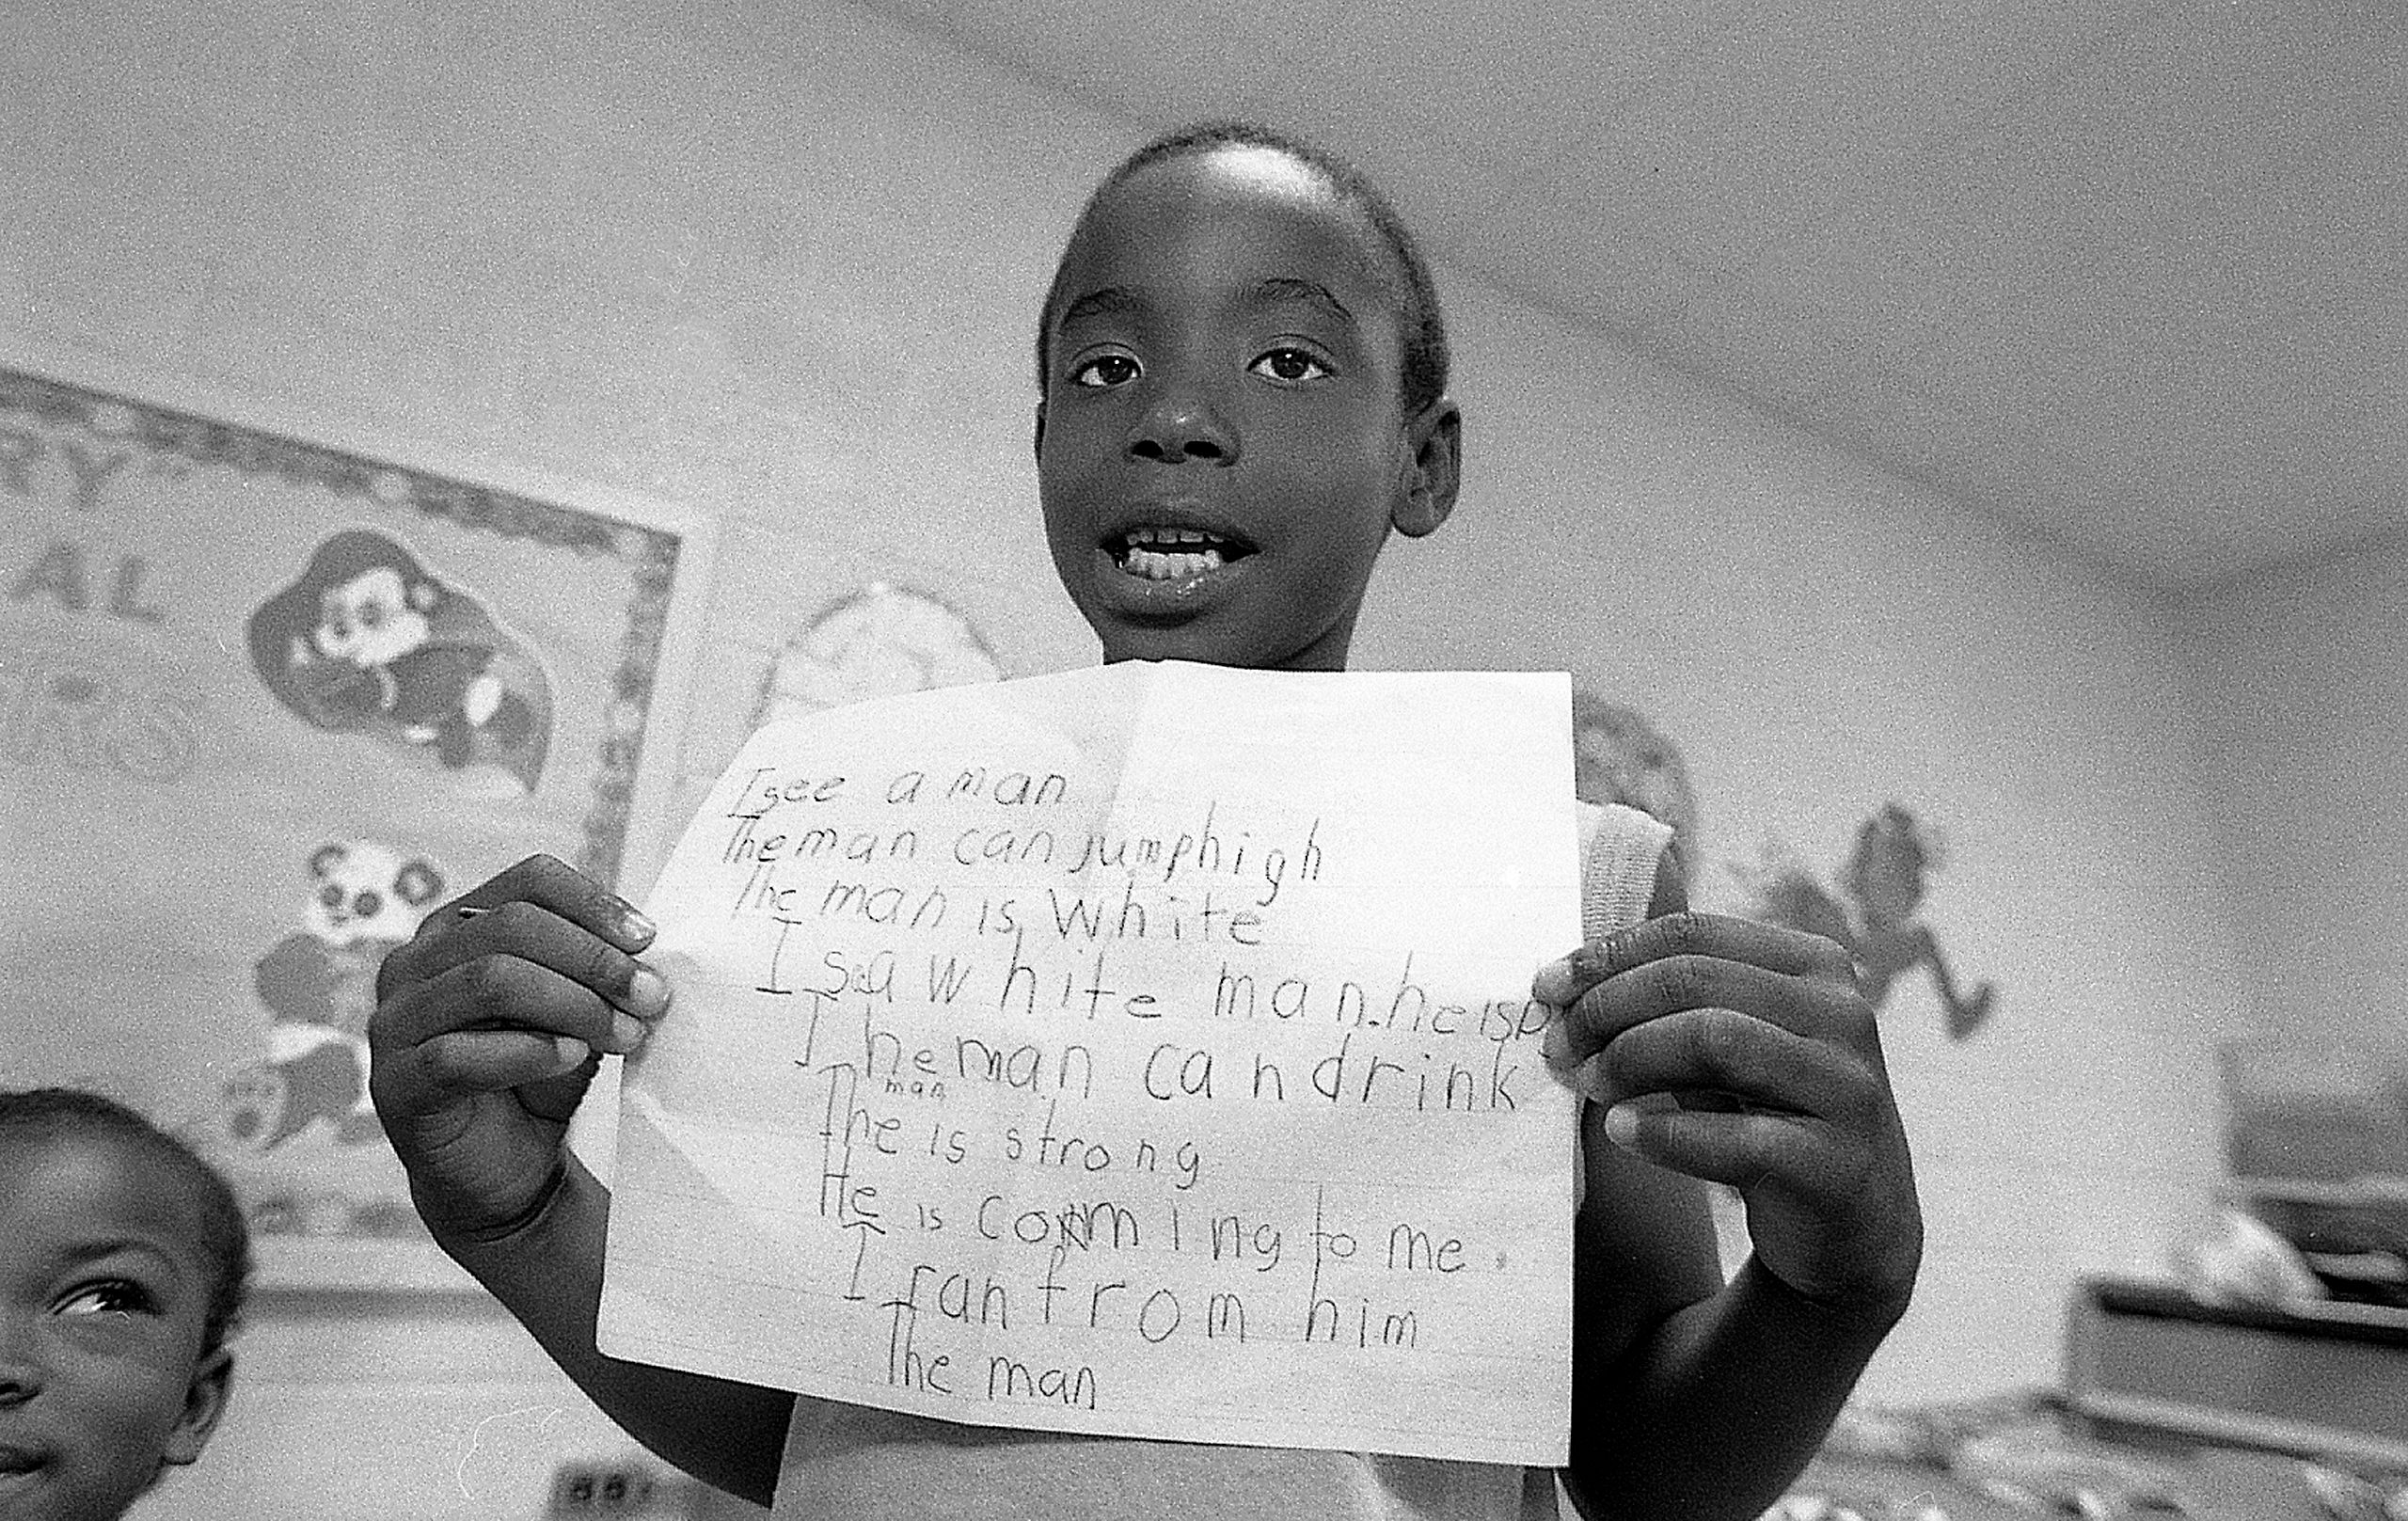 RY
AL
I see a man
The man can jump high
The man is white
I saw white man. he is
The man can drink
man
The is strong
He is comming to me.
I ran from him
The man